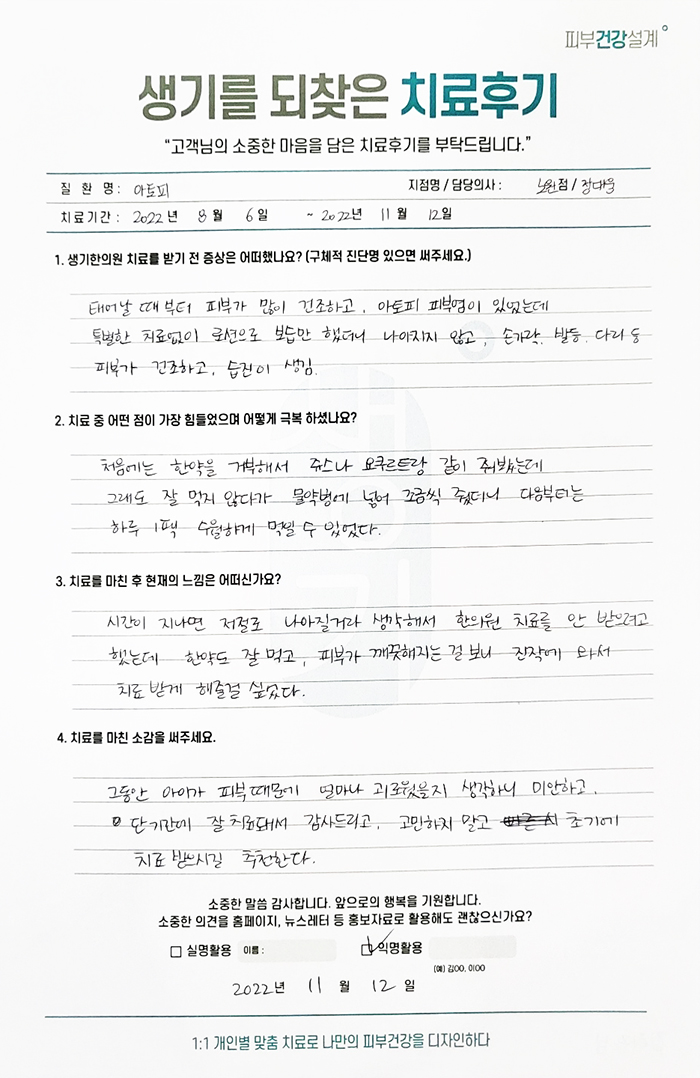 피부건강설계
생기를 되찾은 치료후기
“고객님의 소중한 마음을 담은 치료후기를 부탁드립니다.”
질 환 명 : 아토피 지점명 / 담당의사 : 노원점 / 정대웅
치료기간 : 2022년 8월 6일 ~ 2022년 11월 12일
1. 생기한의원 치료를 받기 전 증상은 어떠했나요? (구체적 진단명 있으면 써주세요.)
태어날 때부터 피부가 많이 건조하고, 아토피 피부염이 있었는데
특별한 치료없이 로션으로 보습만 했더니 나아지지 않고, 손가락, 발등, 다리 등
피부가 건조하고, 습진이 생김.
2. 치료 중 어떤 점이 가장 힘들었으며 어떻게 극복 하셨나요?
처음에는 한약을 거부해서 쥬스나 요쿠르트랑 같이 줘봤는데
그래도 잘 먹지 않다가 물약병에 넣어 조금씩 줬더니 다음부터는
하루 1팩 수월하게 먹일 수 있었다.
3. 치료를 마친 후 현재의 느낌은 어떠신가요?
시간이 지나면 저절로 나아질거라 생각해서 한의원 치료를 안 받으려고
했는데 한약도 잘 먹고, 피부가 깨끗해지는 걸 보니 진작에 와서
치료 받게 해줄걸 싶었다.
4. 치료를 마친 소감을 써주세요.
그동안 아이가 피부때문에 얼마나 괴로웠을지 생각하니 미안하고,
단기간에 잘 치료돼서 감사드리고, 고민하지 말고 초기에
치료 받으시길 추천한다.
소중한 말씀 감사합니다. 앞으로의 행복을 기원합니다.
소중한 의견을 홈페이지, 뉴스레터 등 홍보자료로 활용해도 괜찮으신가요?
실명활용 이름 : 익명활용
(예) 김OO, 이OO
2022년 11 월 12 일
1:1 개인별 맞춤 치료로 나만의 피부건강을 디자인하다